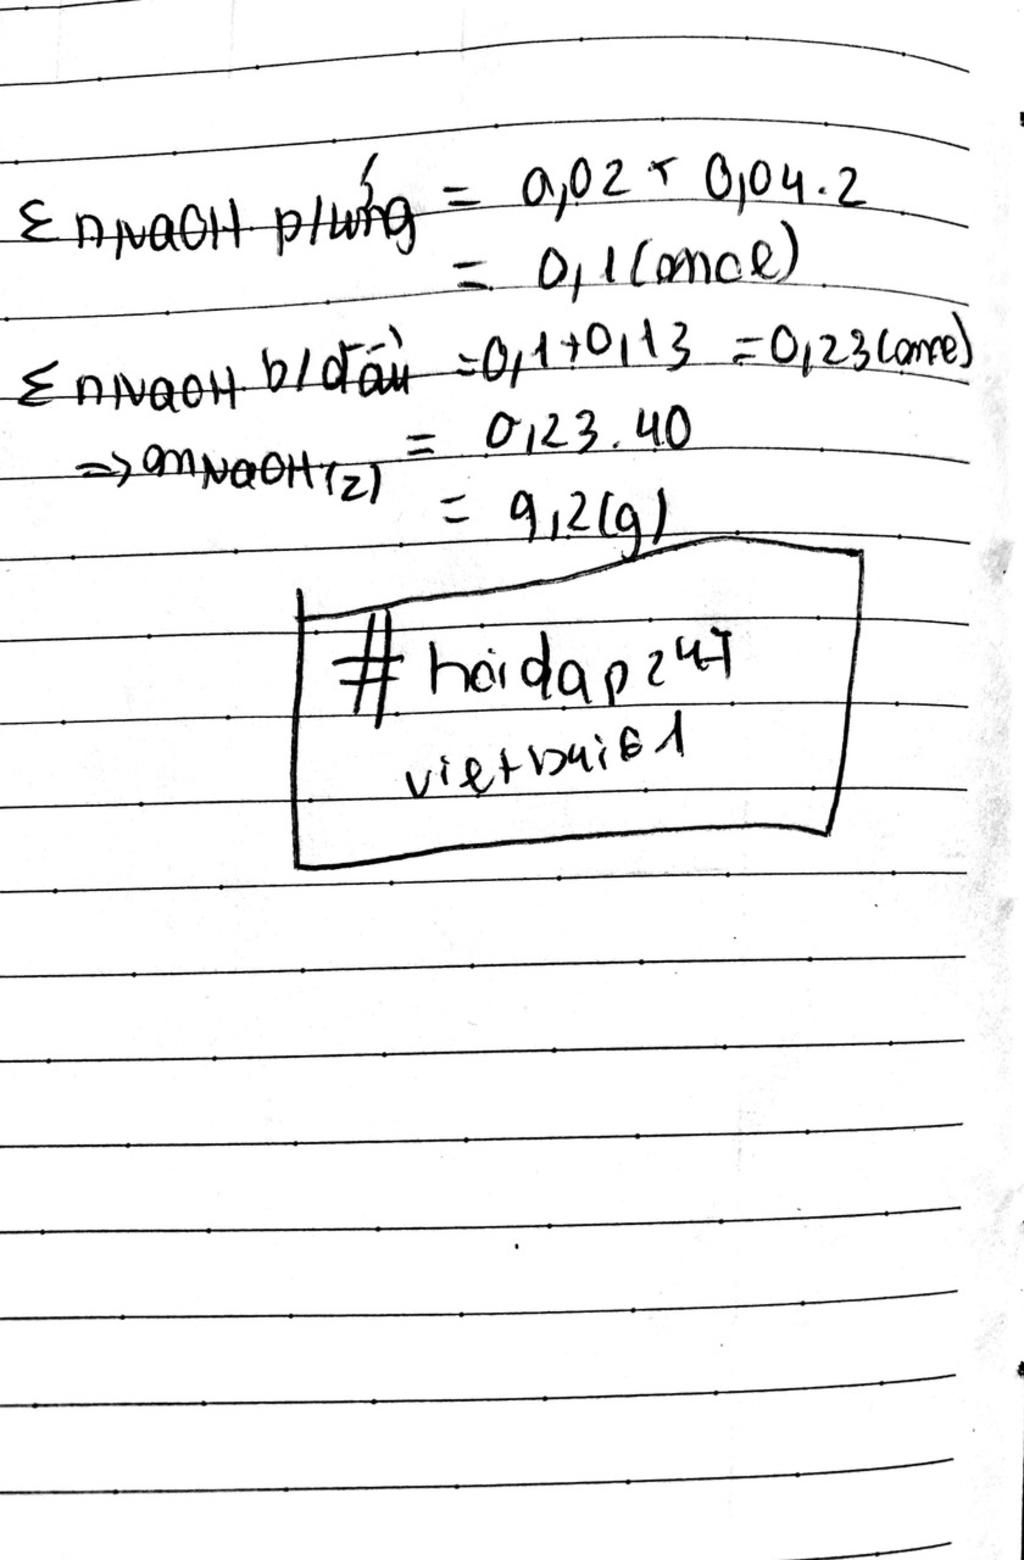 Σ nNaOH p/ứng = 0,02 + 0,04.2
= 0,1 (mol)
Σ nNaOH b/đầu = 0,1+0,13 = 0,23 (mol)
=> mNaOH(z) = 0,23.40
= 9,2 (g)
# hoidap247
vietbui61